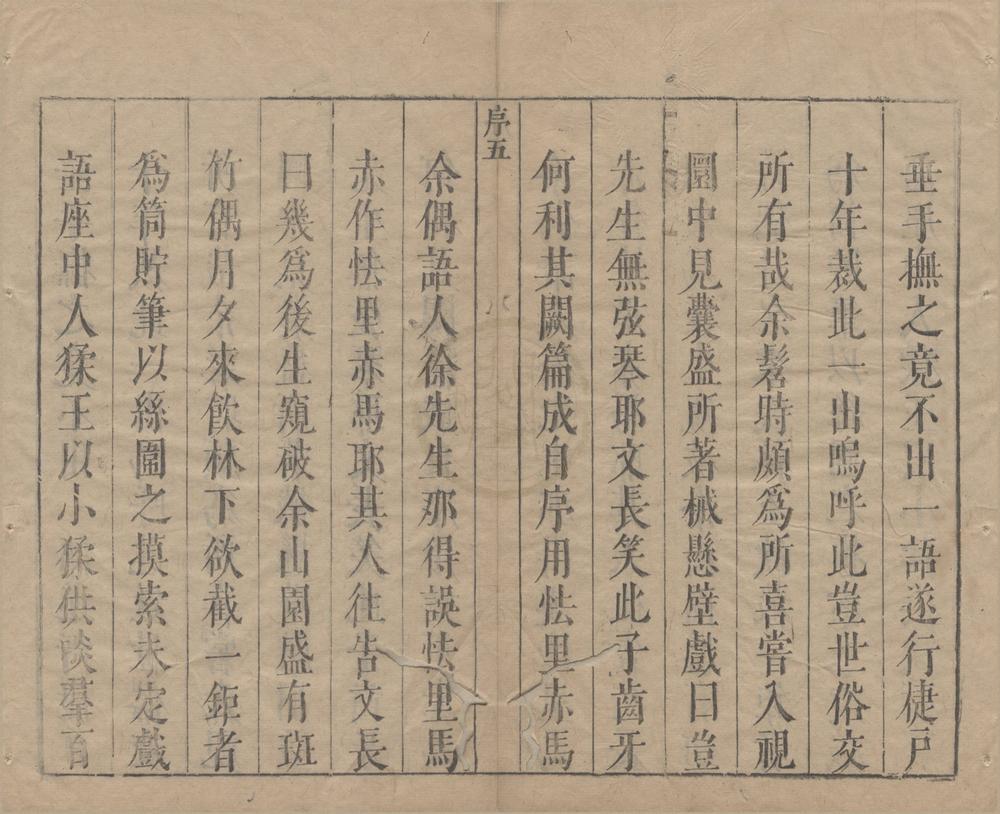 垂手撫之竟不出一語遂行揵戶
十年裁此一出嗚呼此豈世俗交
所有哉余髫時頗爲所喜嘗入視
圜中見囊盛所著械懸壁戲曰豈
先生無弦琴耶文長笑此子齒牙
何利其闕篇成自序用怯里赤馬
序五
余偶語人徐先生那得誤怯里馬
赤作怯里赤馬耶其人往告文長
曰幾爲後生窺破余山園盛有斑
竹偶月夕來飲林下欲截一鉅者
爲筒貯筆以絲圍之摸索未定戲
語座中人猱王以小猱供談羣百